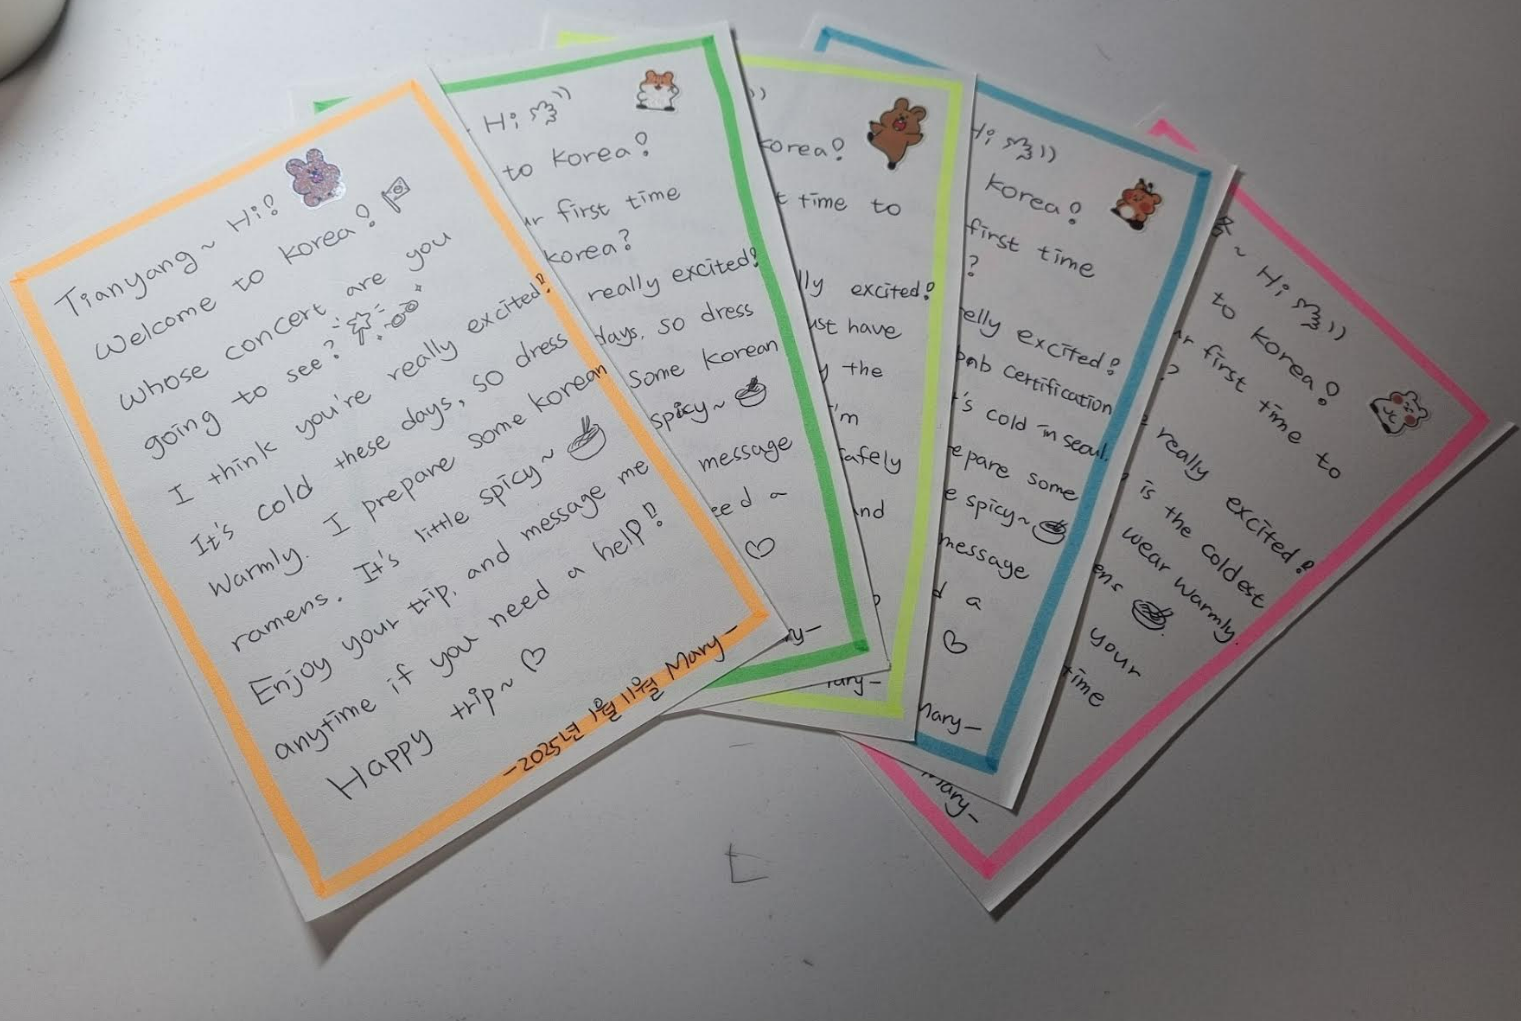 Tianyang~ Hi!
Welcome to Korea!
Whose concert are you
going to see?
I think you're really excited!
It's cold these days, so dress
warmly. I prepare some korean
ramens. It's little spicy~
Enjoy your trip, and message me
anytime if you need a help!
Happy trip~ ♡
-2025년 1월 11월 Mary-
Hi
to Korea!
first time
korea?
really excited!
days, so dress
some korean
spicy~
message
a
♡
korea!
time to
excited!
have
the
I'm
safely
and
Mary-
Hi
Korea!
first time
?
excited!
certification
cold in seoul.
some
spicy~
message
a
♡
Mary-
~ Hi
to Korea!
first time to
?
really excited!
is the coldest
wear warmly.
your
time
Mary-